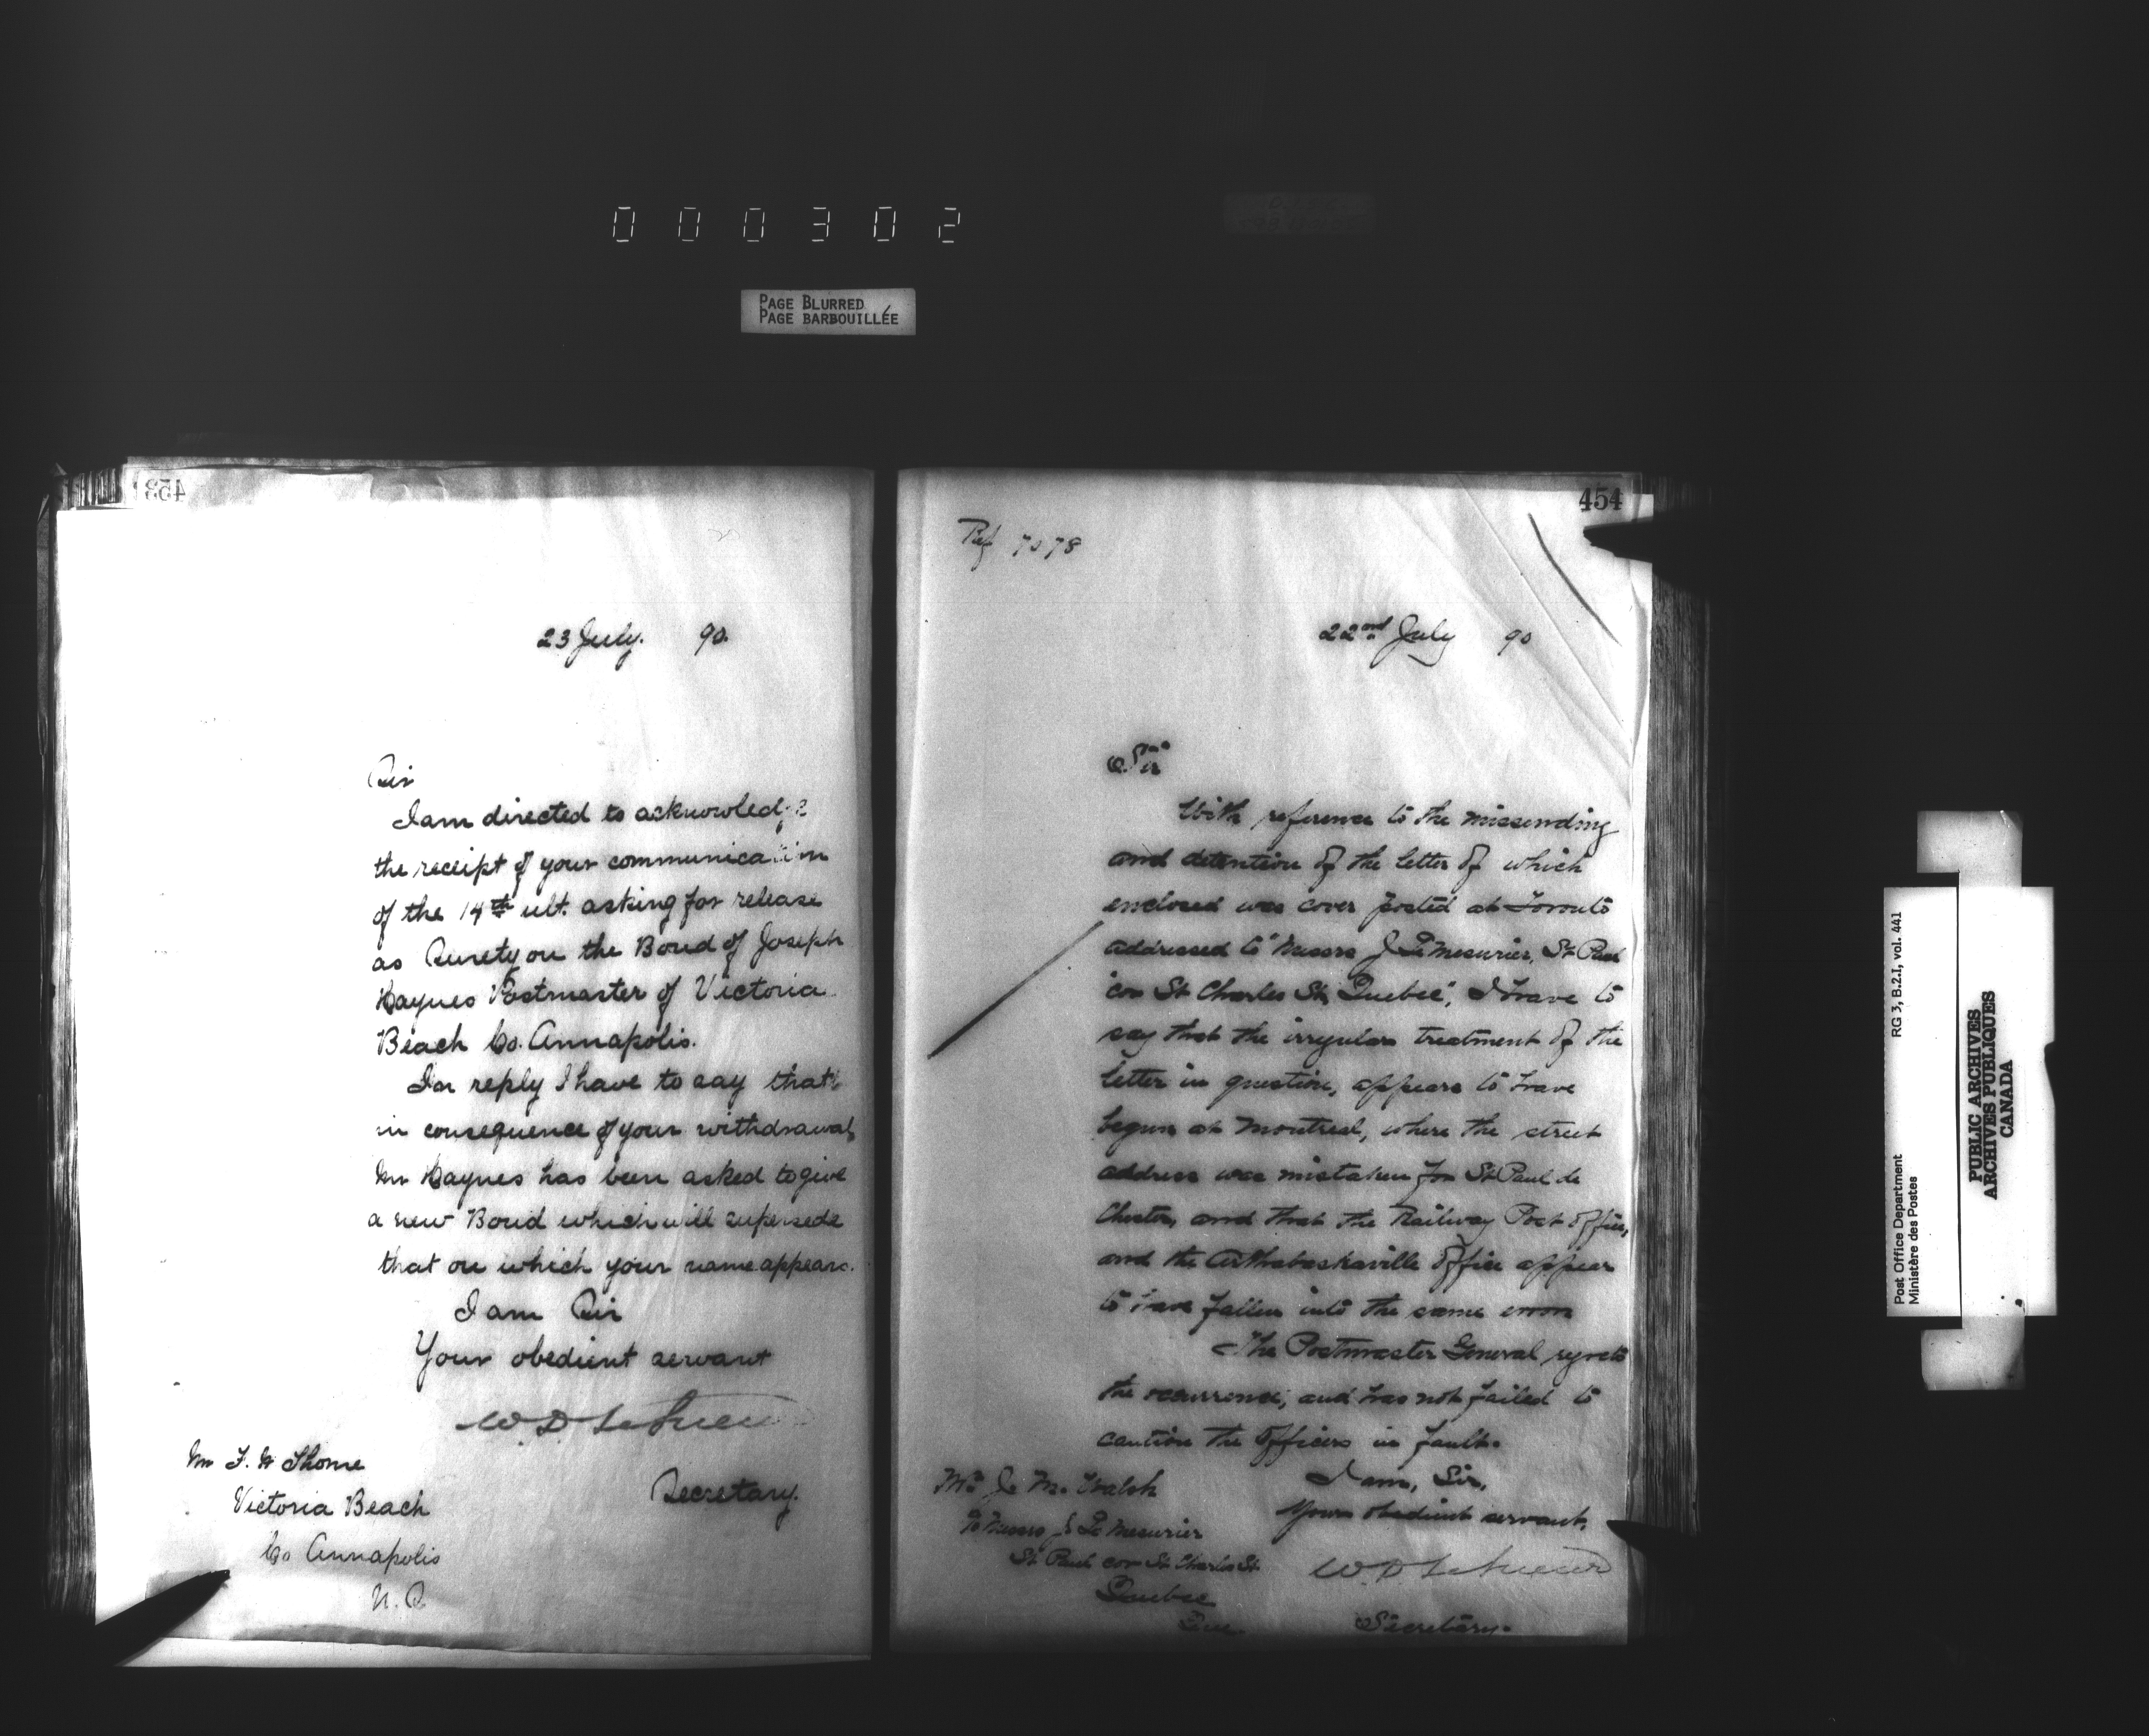 000302
PAGE BLURRED
PAGE BARBOUILLÉE
453
23 July. 90.
Sir
I am directed to acknowledge
the receipt of your communication
of the 14th ult. asking for release
as Surety on the Bond of Joseph
Haynes Postmaster of Victoria
Beach Co. Annapolis.
In reply I have to say that
in consequence of your withdrawal,
Mr Haynes has been asked to give
a new Bond which will supersede
that on which your name appears.
I am Sir
Your obedient servant
W. D. LeSueur
Secretary.
Mr F. W Thorne
Victoria Beach
Co Annapolis
N. S
454
Ref 7078
22nd July 90
Sir
With reference to the missending
and detention of the letter of which
enclosed was cover posted at Toronto
addressed to "Messrs J. LeMesurier, St Paul
cor St Charles St, Quebec", I have to
say that the irregular treatment of the
letter in question, appears to have
begun at Montreal, where the street
address was mistaken for St Paul de
Chester, and that the Railway Post Office,
and the Arthabaskaville Office appear
to have fallen into the same error
The Postmaster General regrets
the occurrence, and has not failed to
caution the Officers in fault.
I am, Sir,
Your obedient servant,
W. D. LeSueur
Secretary.
Mr J. M. Walsh
Messrs J LeMesurier
St Paul cor St Charles St
Quebec
Que
Post Office Department RG 3, B.2.I, vol. 441
Ministère des Postes
PUBLIC ARCHIVES
ARCHIVES PUBLIQUES
CANADA